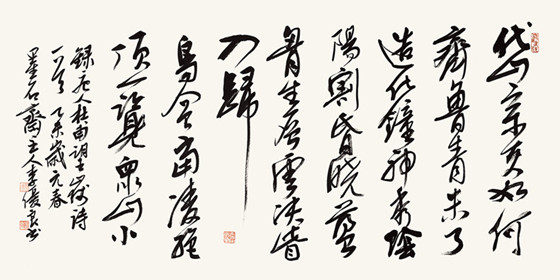 岱宗夫如何
齊魯青未了
造化鐘神秀陰
陽割昏曉蕩
胸生層雲決眥
入歸
鳥會當凌絕
頂一覽眾山小
錄唐人杜甫望岳詩
一首 乙未歲元春
墨石齋主人李良書